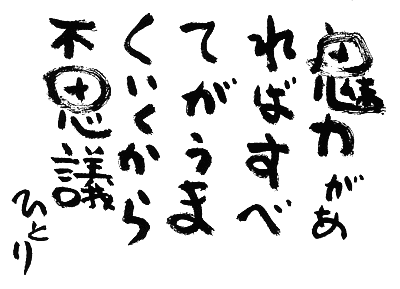 魅力があ
ればすべ
てがうま
くいくから
不思議
ひとり